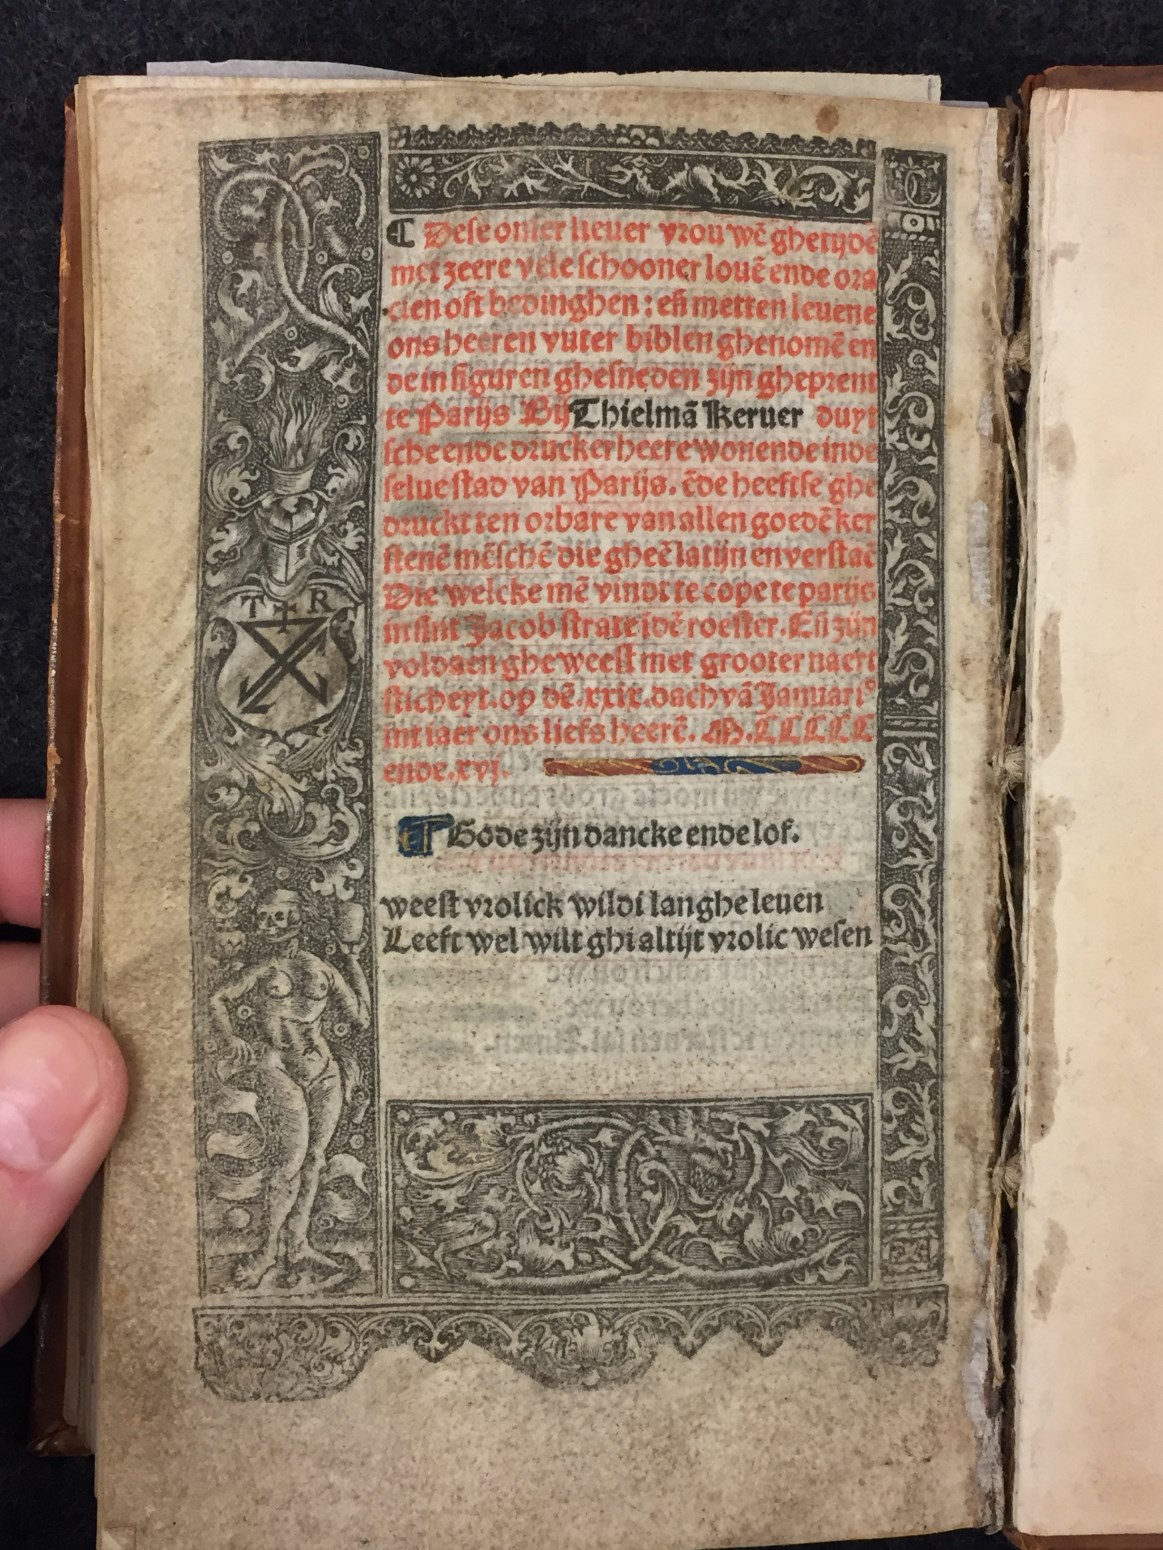 T K R
¶ Dese onser lieuer vrouwē ghetijde
met zeere vele schooner louē ende ora
cien oft bedinghen : eñ metten leuene
ons heeren vuter biblen ghenomē en
de in figuren ghesneden zijn gheprent
te Parijs Bij Thielmā Keruer duyt
sche ende drucker heere wonende inde
selue stad van Parijs. ēde heeftse ghe
druckt ten orbare van allen goedē ker
stenē mēschē die gheē latijn en verstaē
Die welcke mē vindt te cope te parijs
in sint Jacob strate idē roester. Eñ zijn
voldaen gheweest met grooter naert
sticheyt. op dē .xxix. dach vā Januari⁹
int iaer ons liefs heerē. M.CCCCC
ende .xvj.
¶ Gode zijn dancke ende lof.
weest vrolick wildi langhe leuen
Leeft wel wilt ghi altijt vrolic wesen